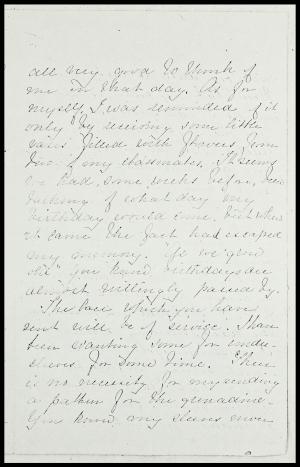 all very good to think of
me on that day. As for
myself I was reminded of it
only by receiving some little
vases filled with flowers from
two of my classmates. It seems
we had, some weeks before, been
talking of what day my
birthday would come. But when
it came the fact had escaped
my memory. "As we grow
old" you know birthdays are
almost willingly passed by.
The lace which you have
sent will be of service. I have
been wanting some for under-
sleeves for some time. There
is no necessity for my sending
a pattern for the grenadine.
You know my sleeves never